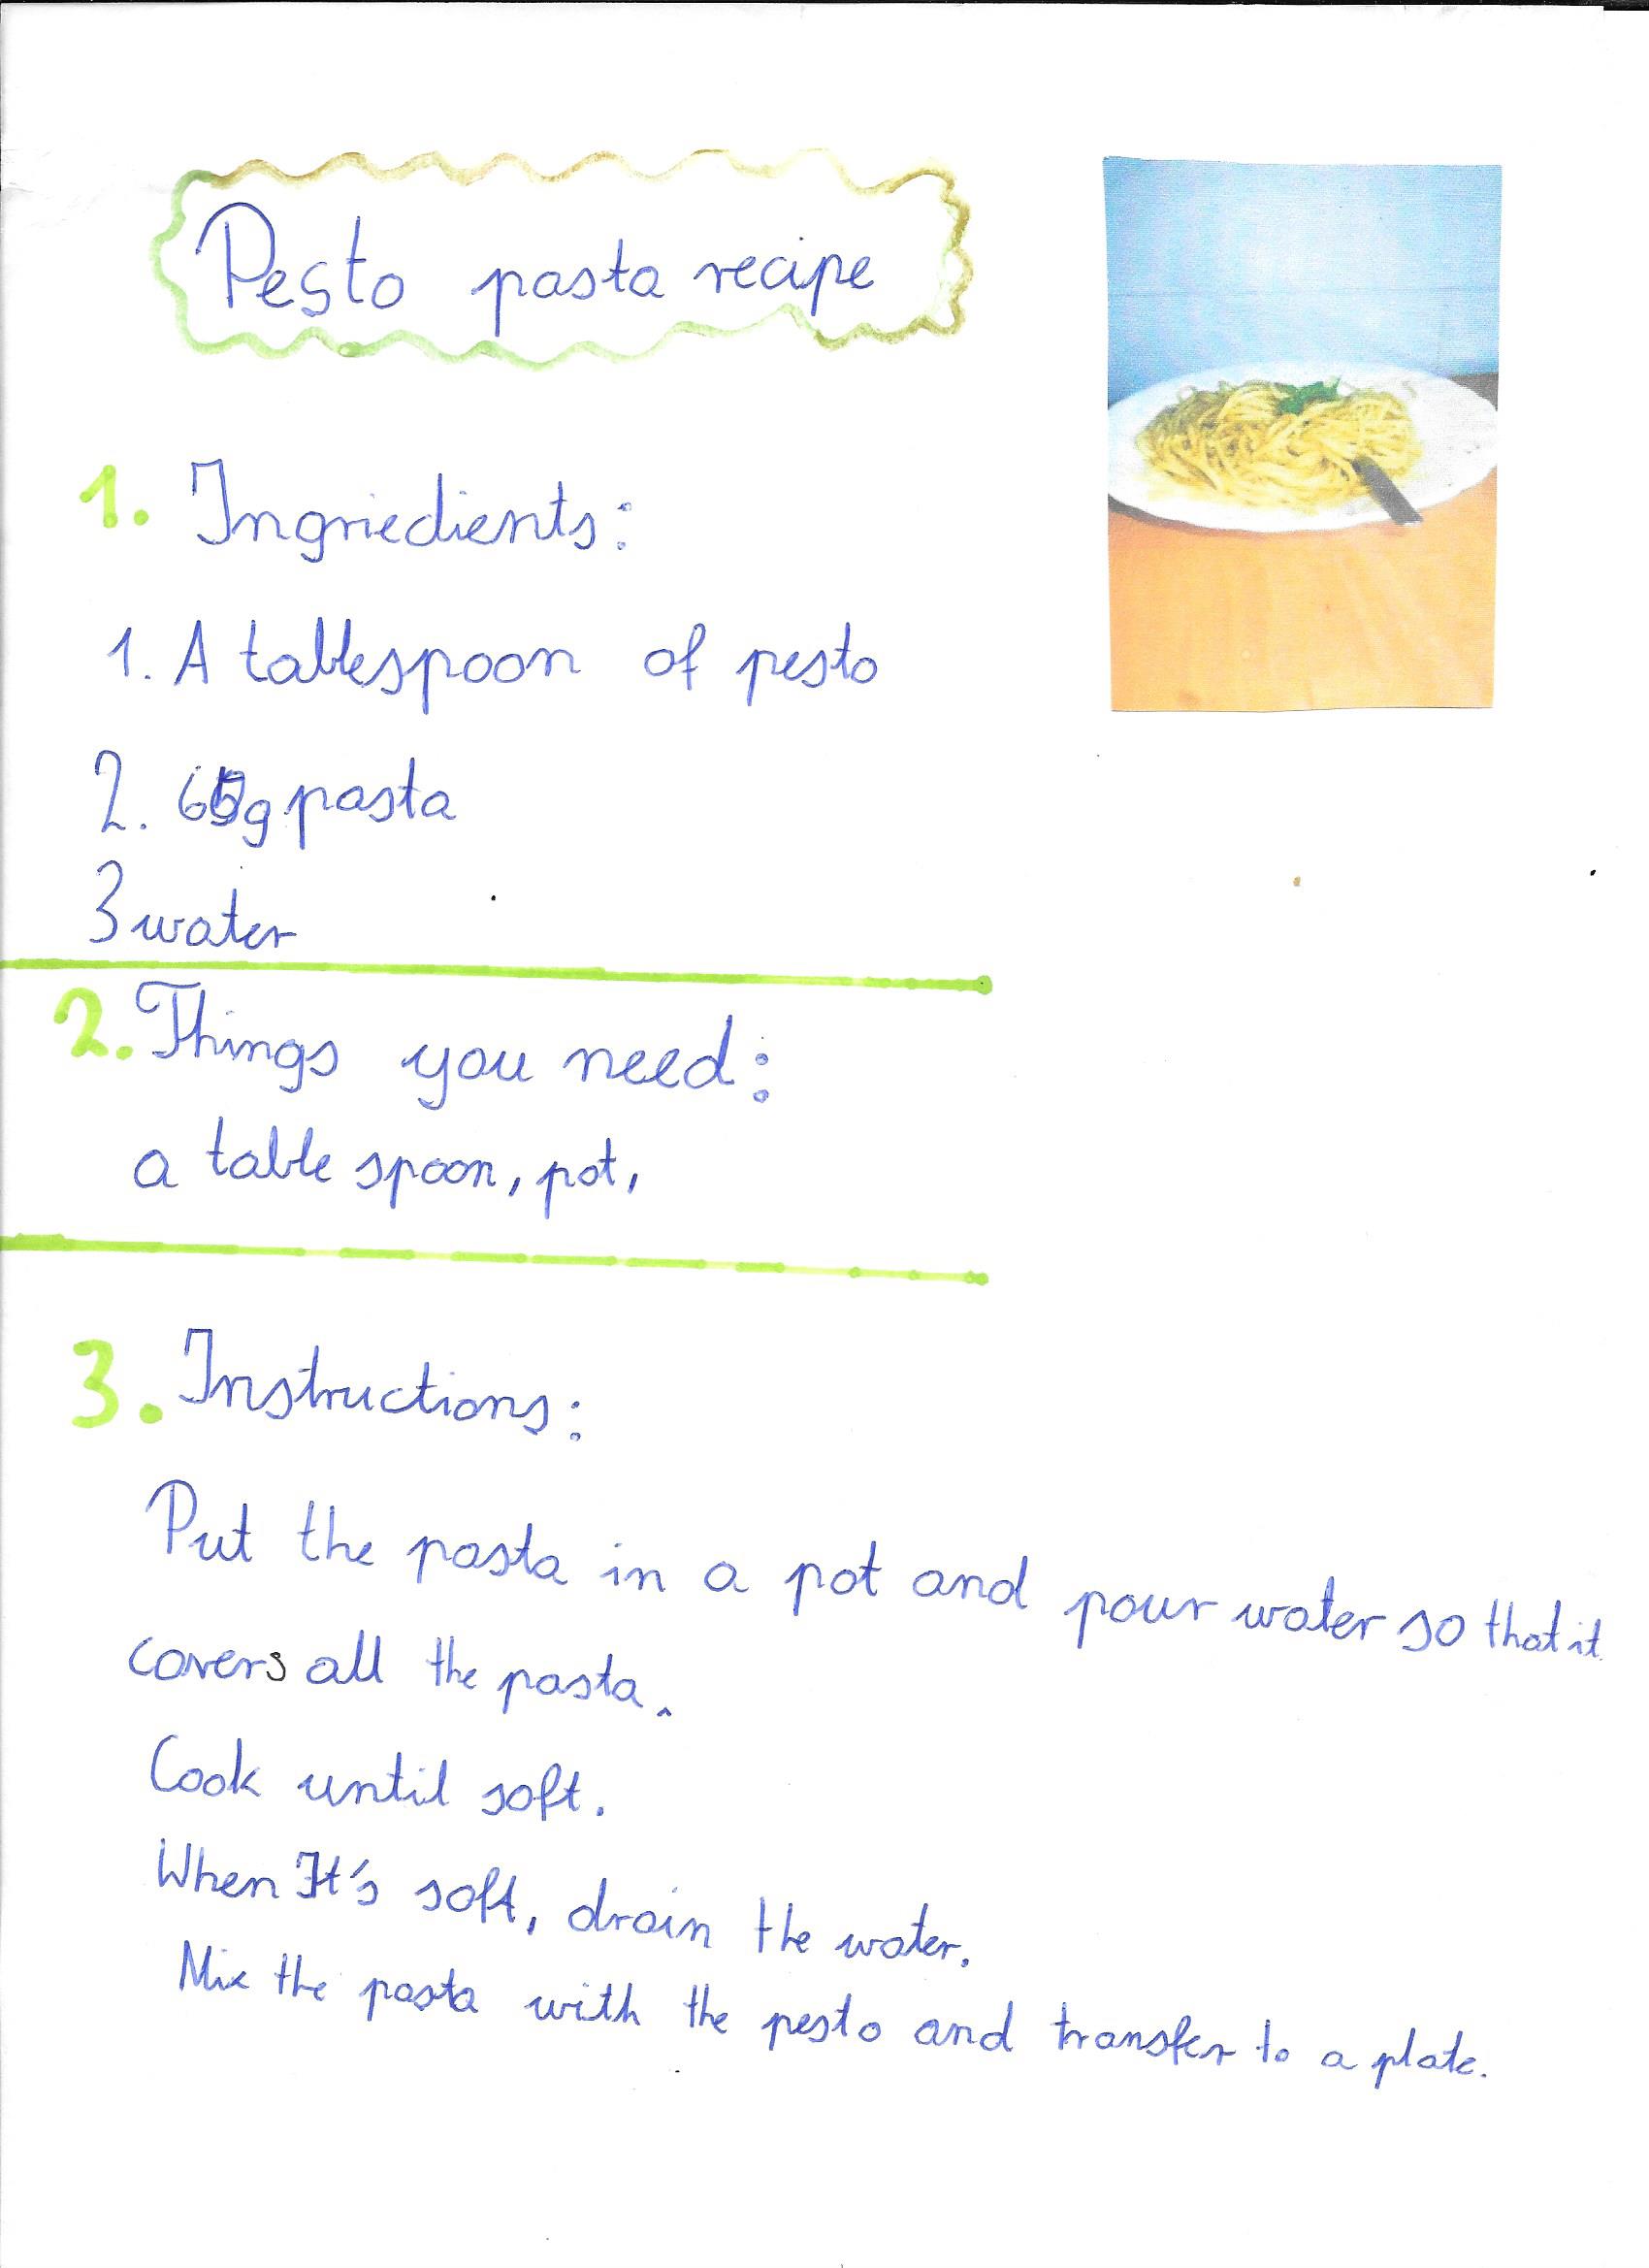 Pesto pasta recipe
1. Ingriedients:
1. A tablespoon of pesto
2. 65g pasta
3 water
2. Things you need:
a table spoon, pot,
3. Instructions:
Put the pasta in a pot and pour water so that it
covers all the pasta.
Cook until soft.
When It's soft, drain the water.
Mix the pasta with the pesto and transfer to a plate.